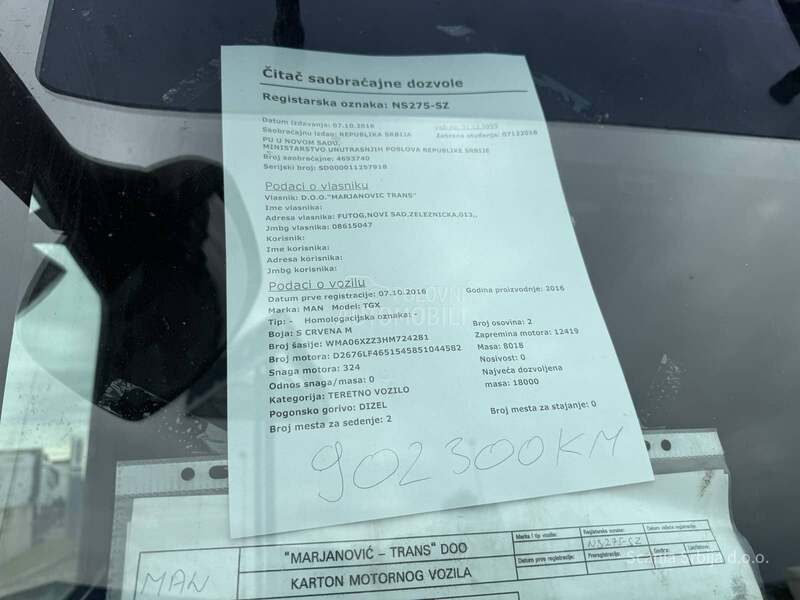 Čitač saobraćajne dozvole
Registarska oznaka: NS275-SZ
Datum izdavanja: 07.10.2016
Saobraćajnu izdao: REPUBLIKA SRBIJA
Zabrana otuđenja: 07122016
PU U NOVOM SADU,
MINISTARSTVO UNUTRAŠNJIH POSLOVA REPUBLIKE SRBIJE
Broj saobraćajne: 4693740
Serijski broj: SD000011257918
Podaci o vlasniku
Vlasnik: D.O.O."MARJANOVIC TRANS"
Ime vlasnika:
Adresa vlasnika: FUTOG,NOVI SAD,ZELEZNICKA,013,,
Jmbg vlasnika: 08615047
Korisnik:
Ime korisnika:
Adresa korisnika:
Jmbg korisnika:
Podaci o vozilu
Datum prve registracije: 07.10.2016 Godina proizvodnje: 2016
Marka: MAN Model: TGX
Tip: - Homologacijska oznaka: -
Boja: S CRVENA M Broj osovina: 2
Broj šasije: WMA06XZZ3HM724281 Zapremina motora: 12419
Broj motora: D2676LF4651545851044582 Masa: 8018
Snaga motora: 324 Nosivost: 0
Odnos snaga/masa: 0 Najveća dozvoljena
masa: 18000
Kategorija: TERETNO VOZILO
Pogonsko gorivo: DIZEL
Broj mesta za sedenje: 2 Broj mesta za stajanje: 0
902300KM
"MARJANOVIĆ – TRANS" DOO
KARTON MOTORNOG VOZILA
MAN
Marka i tip vozila: Registarska oznaka: Datum isteka registracije:
NS275-SZ
Datum prve registracije: Preregistracija: Godina:
Scania Srbija d.o.o.